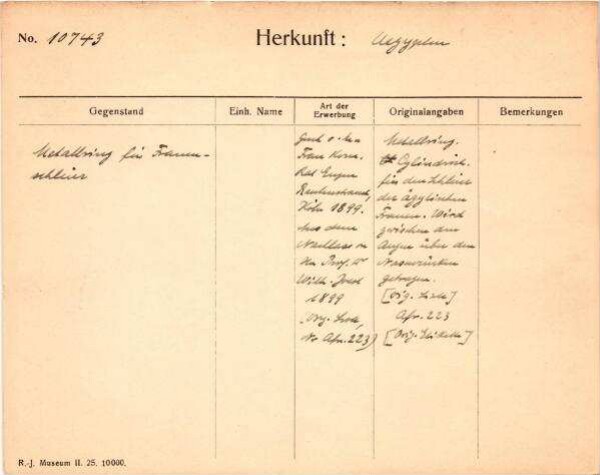 No. 10743 Herkunft: Aegypten
Gegenstand Einh. Name Art der Erwerbung Originalangaben Bemerkungen
Metallring für Frauen-
schleier
Frau Kom.
Rat Eugen
Rautenstrauch,
Köln 1899.
Aus dem
Nachlass v.
Hn. Prof. Dr
Wilh. Joest
1899
(Orig. Liste,
No Afr. 223)
Metallring.
Cylindrisch.
für den Schleier
der ägyptischen
Frauen. Wird
zwischen den
Augen über dem
Nasenrücken
getragen.
[Orig. Liste]
Afr. 223
[Orig. Etikette]
R.-J. Museum II. 25. 10000.